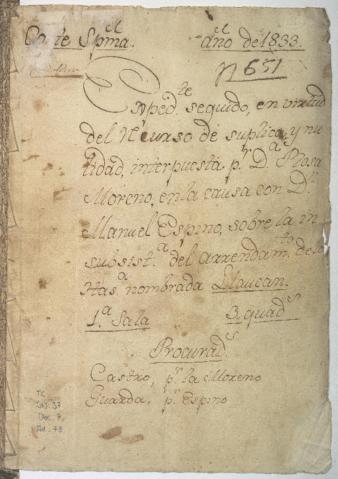 Corte Spma. año del 1833.
N 651
Exped.te seguido, en virtud
del Recurso de suplica, y nu
lidad, interpuesta p.r D.a Rosa
Moreno, en la causa con D.n
Manuel Espino, sobre la in
subsist.a del arrendam.to de la
Has.a nombrada Llaucan.
1.a Sala 3. quad.s
Procurad.s
Castro, p.r la Moreno
Guarda, p.r Espino